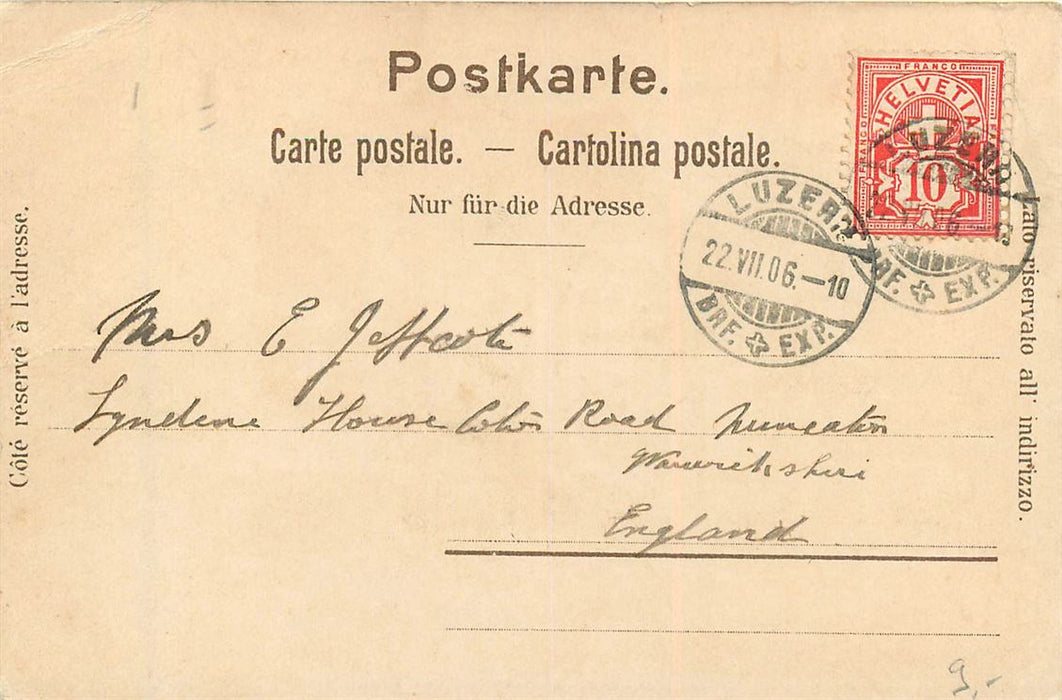 Postkarte.
Carte postale. — Cartolina postale.
Nur für die Adresse.
Côté réservé à l'adresse.
Lato riservato all' indirizzo.
FRANCO
HELVETIA
FRANCO
FRANCO
10
LUZERN
22.VII.06.–10
BRF. EXP.
LUZERN
BRF. EXP.
Mrs E Jeffcote
Lyndene House Coton Road Nuneaton
Warwickshire
England
9.-